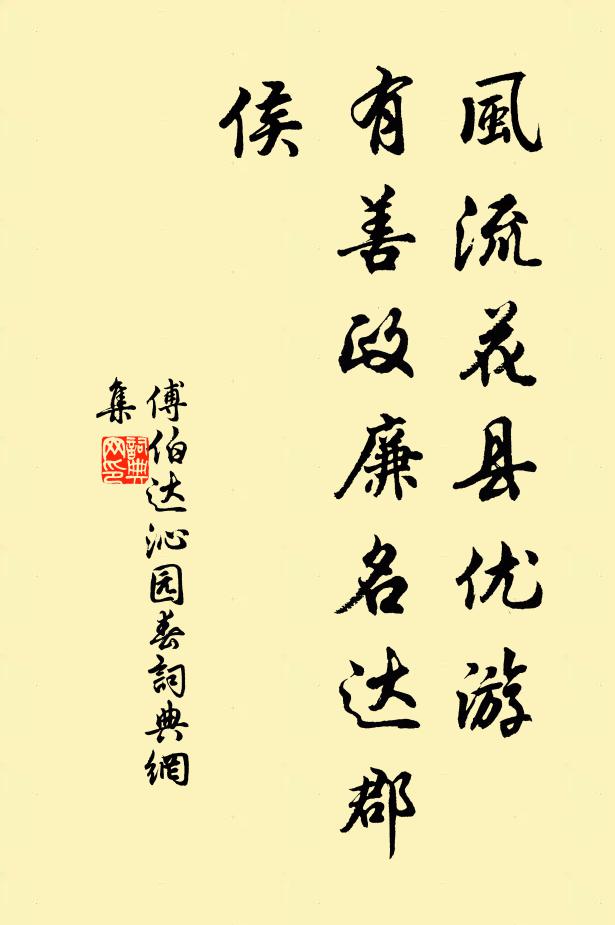 風流花县优游
有善政廉名达郡
侯
傅伯达沁园春詞典網
集
詞典
网印